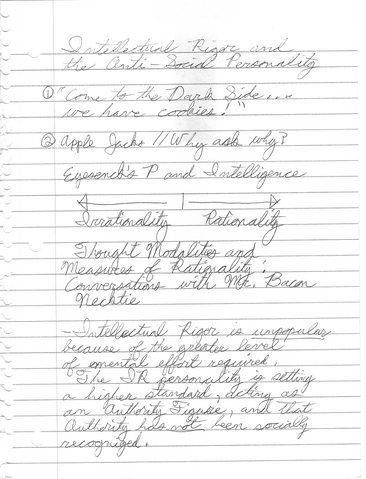 Intellectual Rigor and
the Anti-Social Personality
① "Come to the Dark Side....
we have cookies!"
② Apple Jacks // Why ask why?
Eyesenck's P and Intelligence
Irrationality Rationality
Thought Modalities and
"Measures of Rationality":
Conversations with Mr. Bacon
Necktie
-Intellectual Rigor is unpopular
because of the greater level
of emental effort required.
The IR personality is setting
a higher standard, acting as
an Authority Figure, and that
Authority has not been socially
recognized.